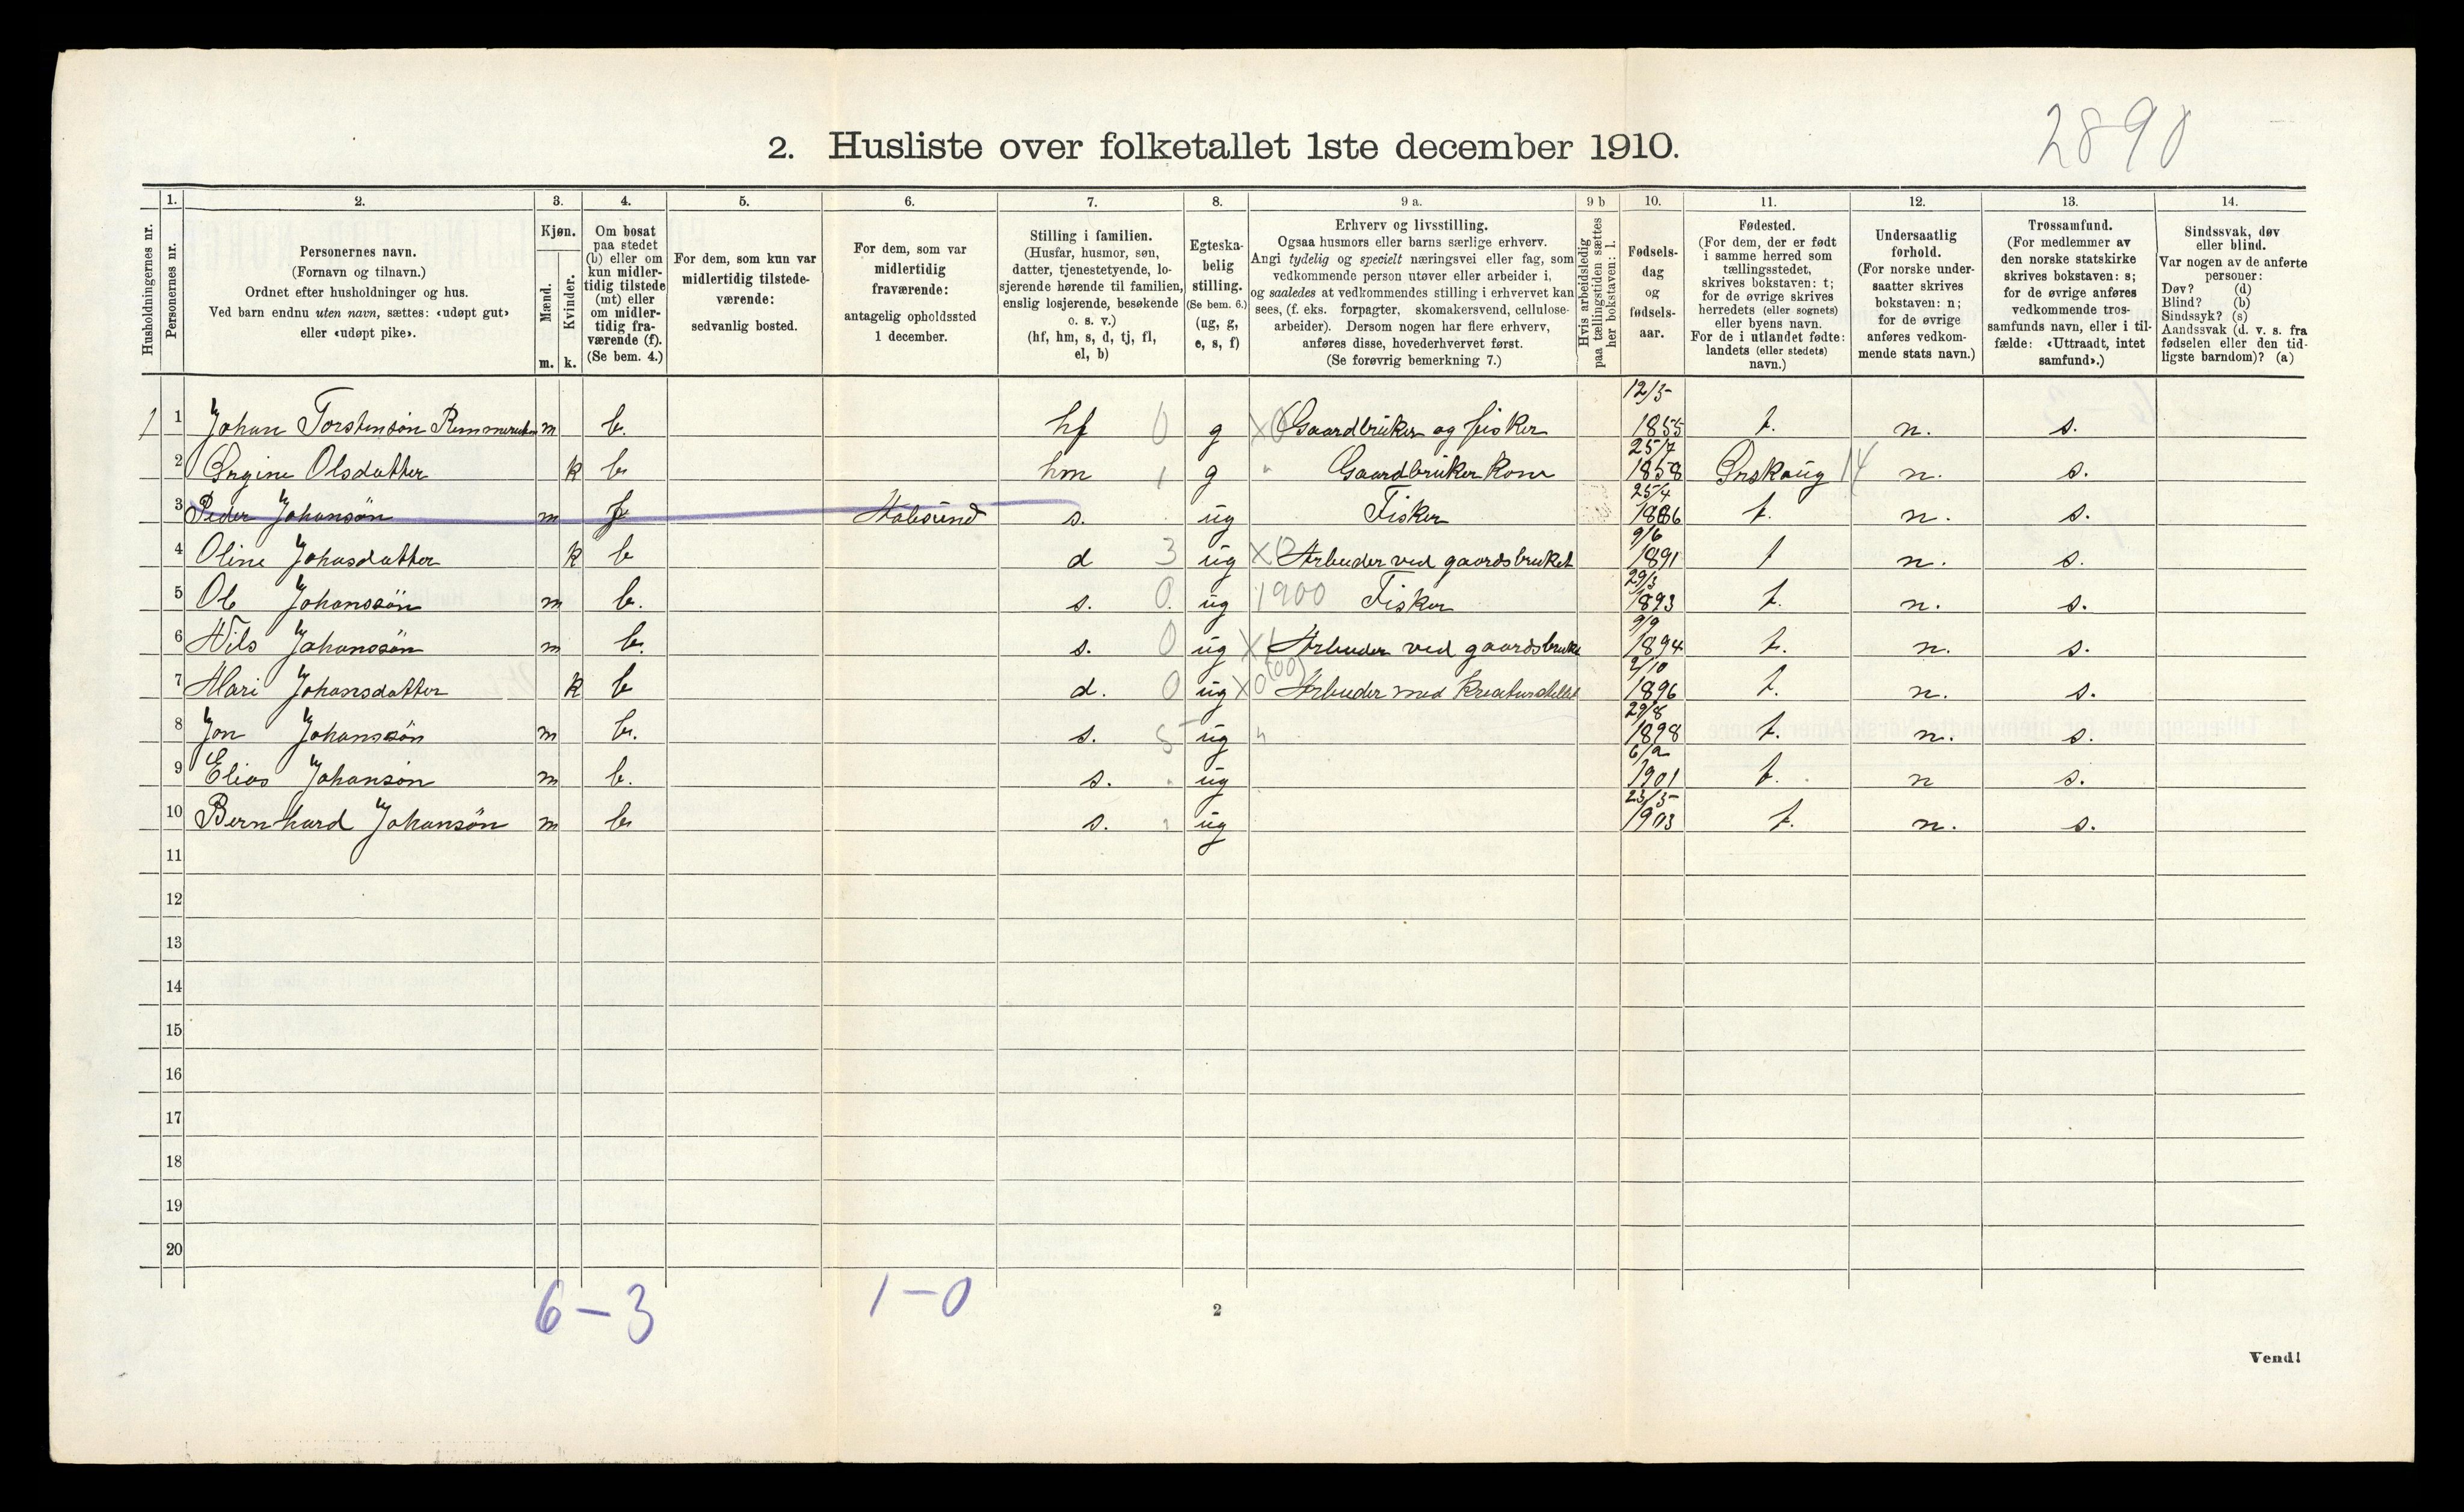 2890
2. Husliste over folketallet 1ste december 1910.
Husholdningernes nr.
1. Personernes nr.
2. Personernes navn. (Fornavn og tilnavn.) Ordnet efter husholdninger og hus. Ved barn endnu uten navn, sættes: «udøpt gut» eller «udøpt pike».
3. Kjøn. Mænd. m. Kvinder. k.
4. Om bosat paa stedet (b) eller om kun midlertidig tilstede (mt) eller om midlertidig fraværende (f). (Se bem. 4.)
5. For dem, som kun var midlertidig tilstedeværende: sedvanlig bosted.
6. For dem, som var midlertidig fraværende: antagelig opholdssted 1 december.
7. Stilling i familien. (Husfar, husmor, søn, datter, tjenestetyende, losjerende hørende til familien, enslig losjerende, besøkende o. s. v.) (hf, hm, s, d, tj, fl, el, b)
8. Egteskabelig stilling. (Se bem. 6.) (ug, g, e, s, f)
9 a. Erhverv og livsstilling. Ogsaa husmors eller barns særlige erhverv. Angi tydelig og specielt næringsvei eller fag, som vedkommende person utøver eller arbeider i, og saaledes at vedkommendes stilling i erhvervet kan sees, (f. eks. forpagter, skomakersvend, cellulosearbeider). Dersom nogen har flere erhverv, anføres disse, hovederhvervet først. (Se forøvrig bemerkning 7.)
9 b Hvis arbeidsledig paa tællingstiden sættes her bokstaven: l.
10. Fødselsdag og fødselsaar.
11. Fødested. (For dem, der er født i samme herred som tællingsstedet, skrives bokstaven: t; for de øvrige skrives herredets (eller sognets) eller byens navn. For de i utlandet fødte: landets (eller stedets) navn.)
12. Undersaatlig forhold. (For norske undersaatter skrives bokstaven: n; for de øvrige anføres vedkommende stats navn.)
13. Trossamfund. (For medlemmer av den norske statskirke skrives bokstaven: s; for de øvrige anføres vedkommende trossamfunds navn, eller i tilfælde: «Uttraadt, intet samfund».)
14. Sindssvak, døv eller blind. Var nogen av de anførte personer: Døv? (d) Blind? (b) Sindssyk? (s) Aandssvak (d. v. s. fra fødselen eller den tidligste barndom)? (a)
1 1 Johan Torstensøn m b. hf 0 g X0 Gaardbruker og fisker 12/5 1855 t. n. s.
2 Ingine Olsdatter k b hm 1 g " Gaardbruker kone 25/7 1858 14 n. s.
3 Peder Johansøn m f s. ug Fisker 25/4 1886 t. n. s.
4 Oline Johansdatter k b d 3 ug X0 Arbeider ved gaardsbruket 9/6 1891 t n. s.
5 Ole Johanssøn m b. s. 0. ug 1900 Fisker 29/3 1893 t. n. s.
6 Nils Johanssøn m b. s. 0 ug X1 Arbeider ved gaardsbruket 9/9 1894 t. n. s.
7 Mari Johansdatter k b d. 0 ug X0 (00) Arbeider med kreaturstellet 2/10 1896 t. n. s.
8 Jon Johanssøn m b. s. 5 ug " 29/8 1898 t. n. s.
9 Elias Johansøn m b. s. ug 6/2 1901 t. n s.
10 Bernhard Johansøn m b s. ug 23/5 1903 t. n. s.
11
12
13
14
15
16
17
18
19
20
6 – 3 1 – 0
2
Vend!